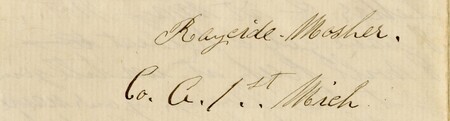 Rayeide Mosher.
Co. G. 1st. Mich